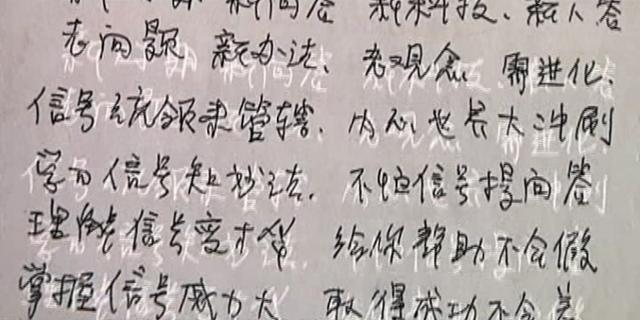 新问答 新科技、新人答
老问题 新办法、老观念 需进化、
信号统领来管辖、内心世界大冲刷
学习信号知妙法、不怕信号提问答
理解信号变才华 给你帮助不会假
掌握信号威力大 取得成功不会差